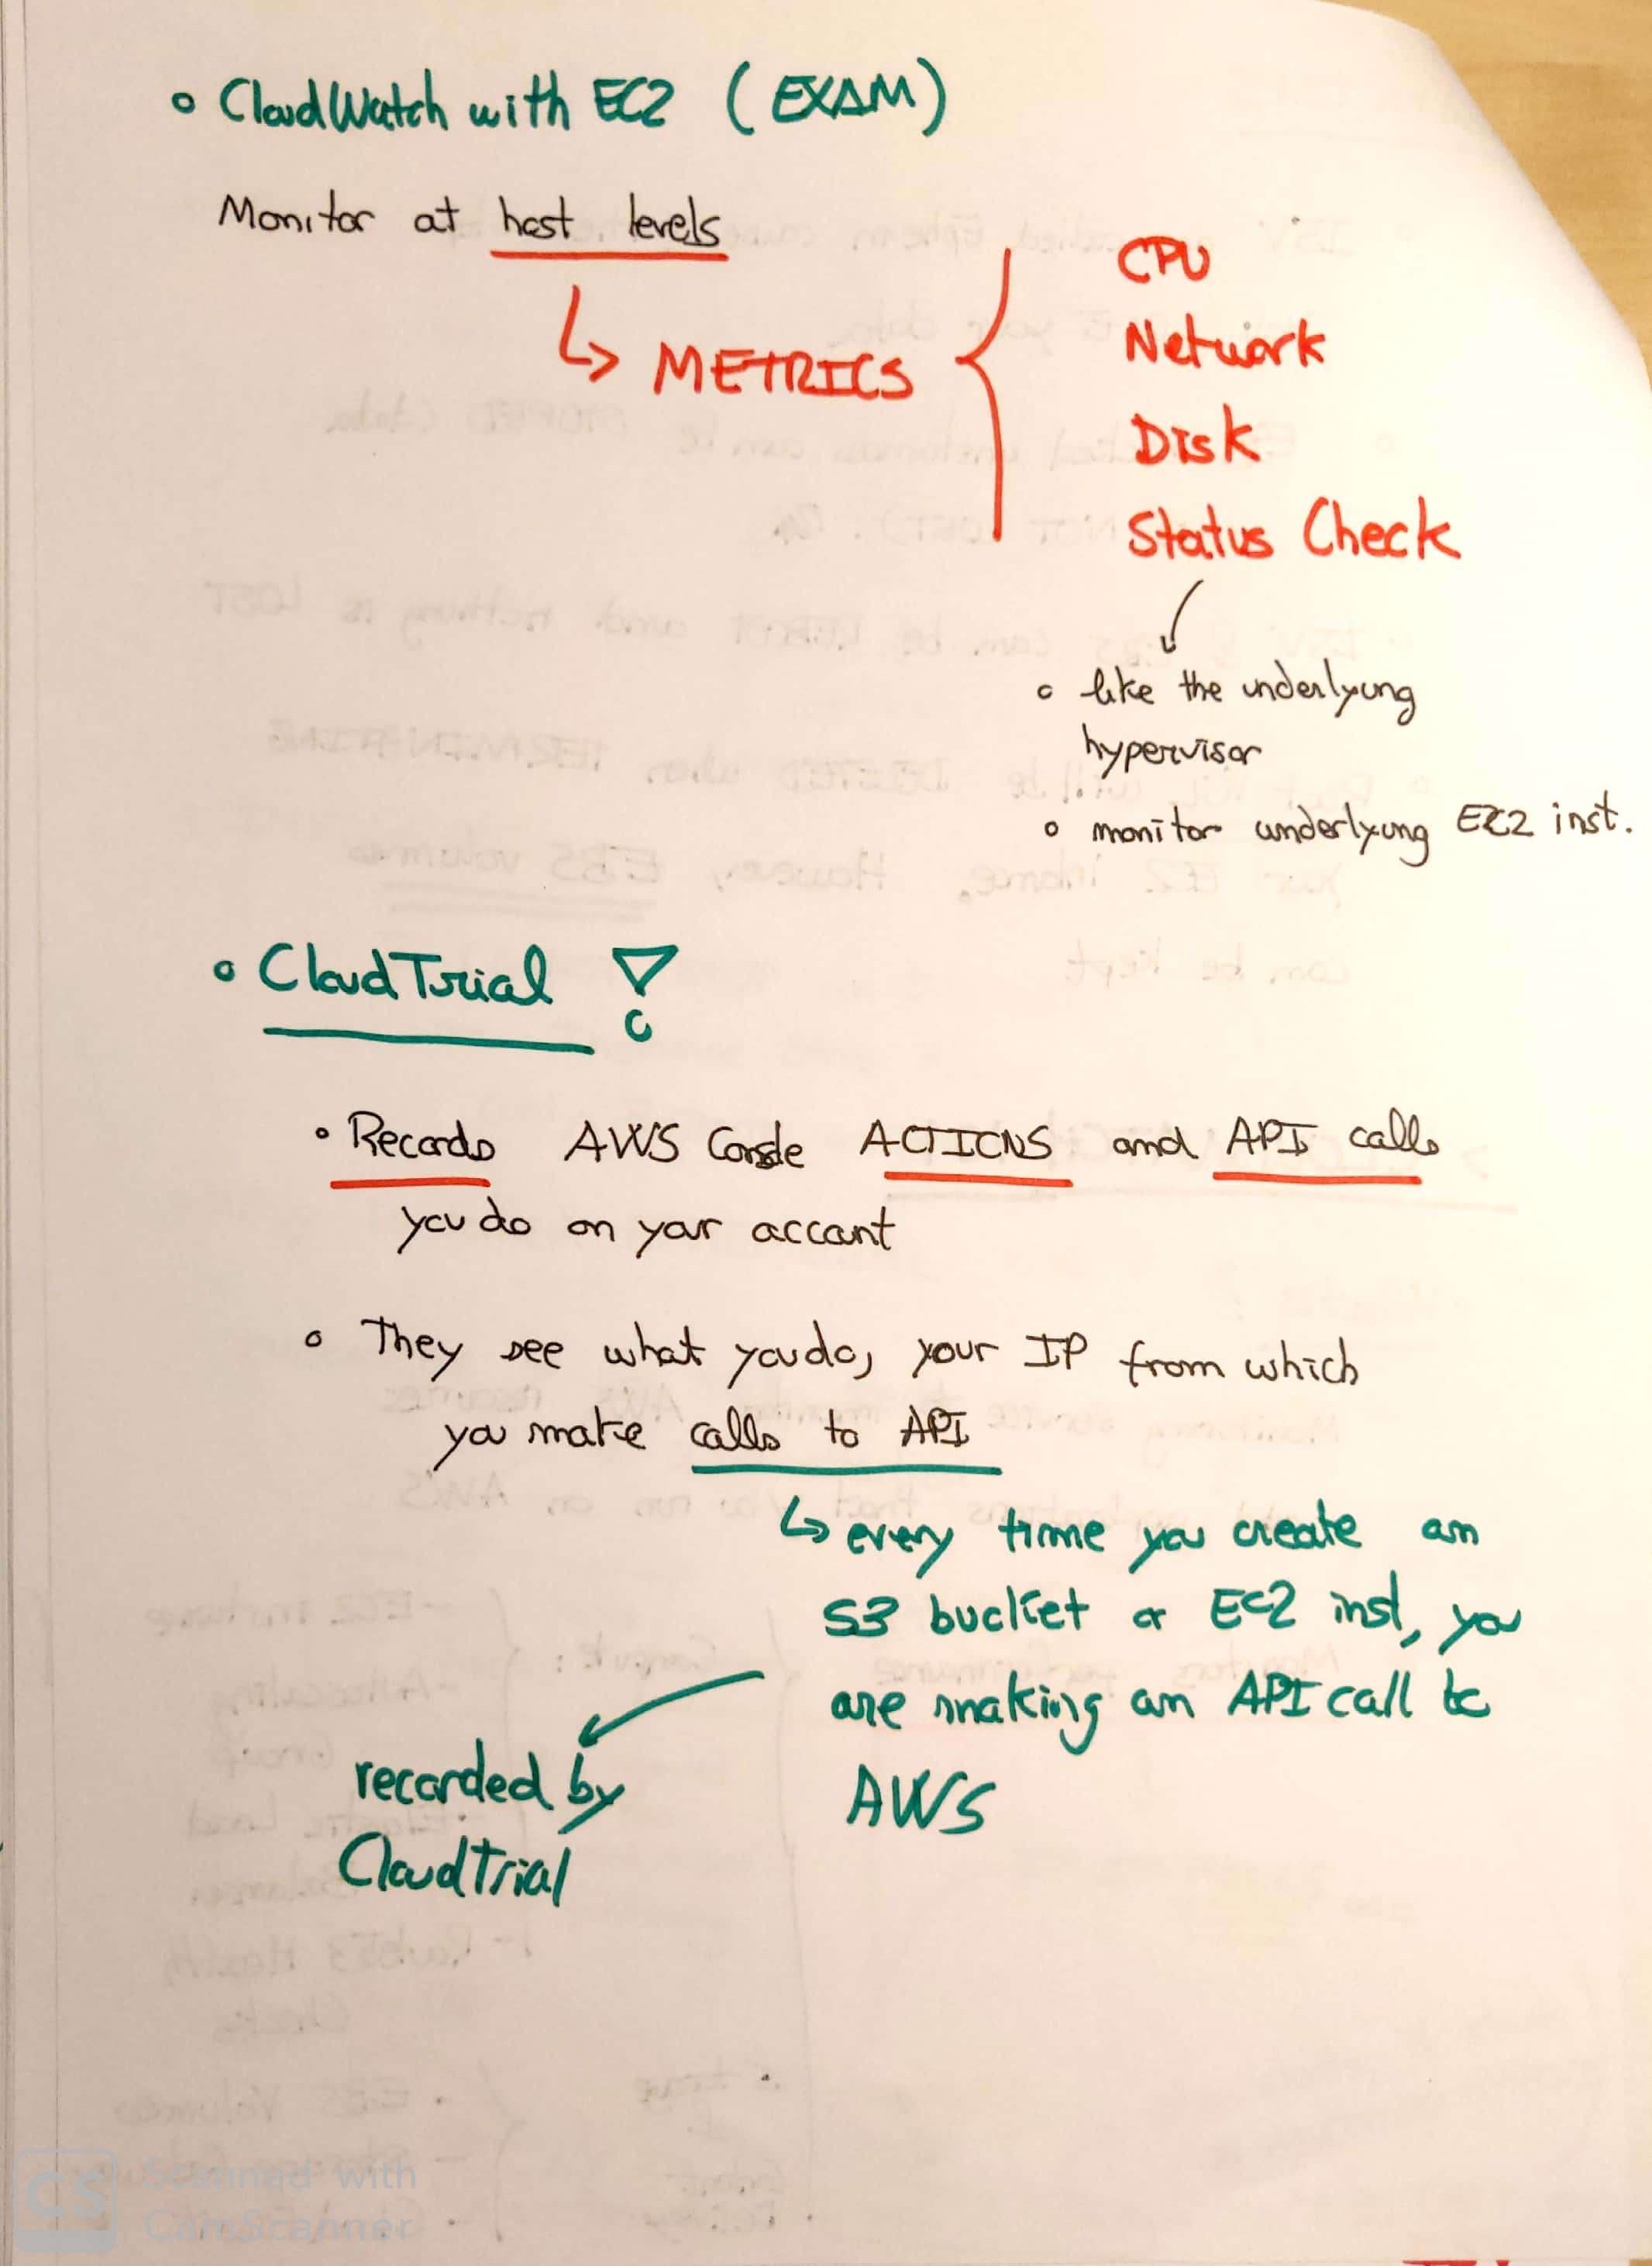 CloudWatch with EC2 (EXAM)
Monitor at host levels
↳ METRICS
CPU
Network
Disk
Status Check
like the underlying
hypervisor
monitor underlying EC2 inst.
CloudTrial !
Records AWS Console ACTIONS and API calls
you do on your account
They see what you do, your IP from which
you make calls to API
↳ every time you create an
S3 bucket or EC2 inst, you
are making an API call to
AWS
recorded by
CloudTrial
CS
Scanned with
CamScanner